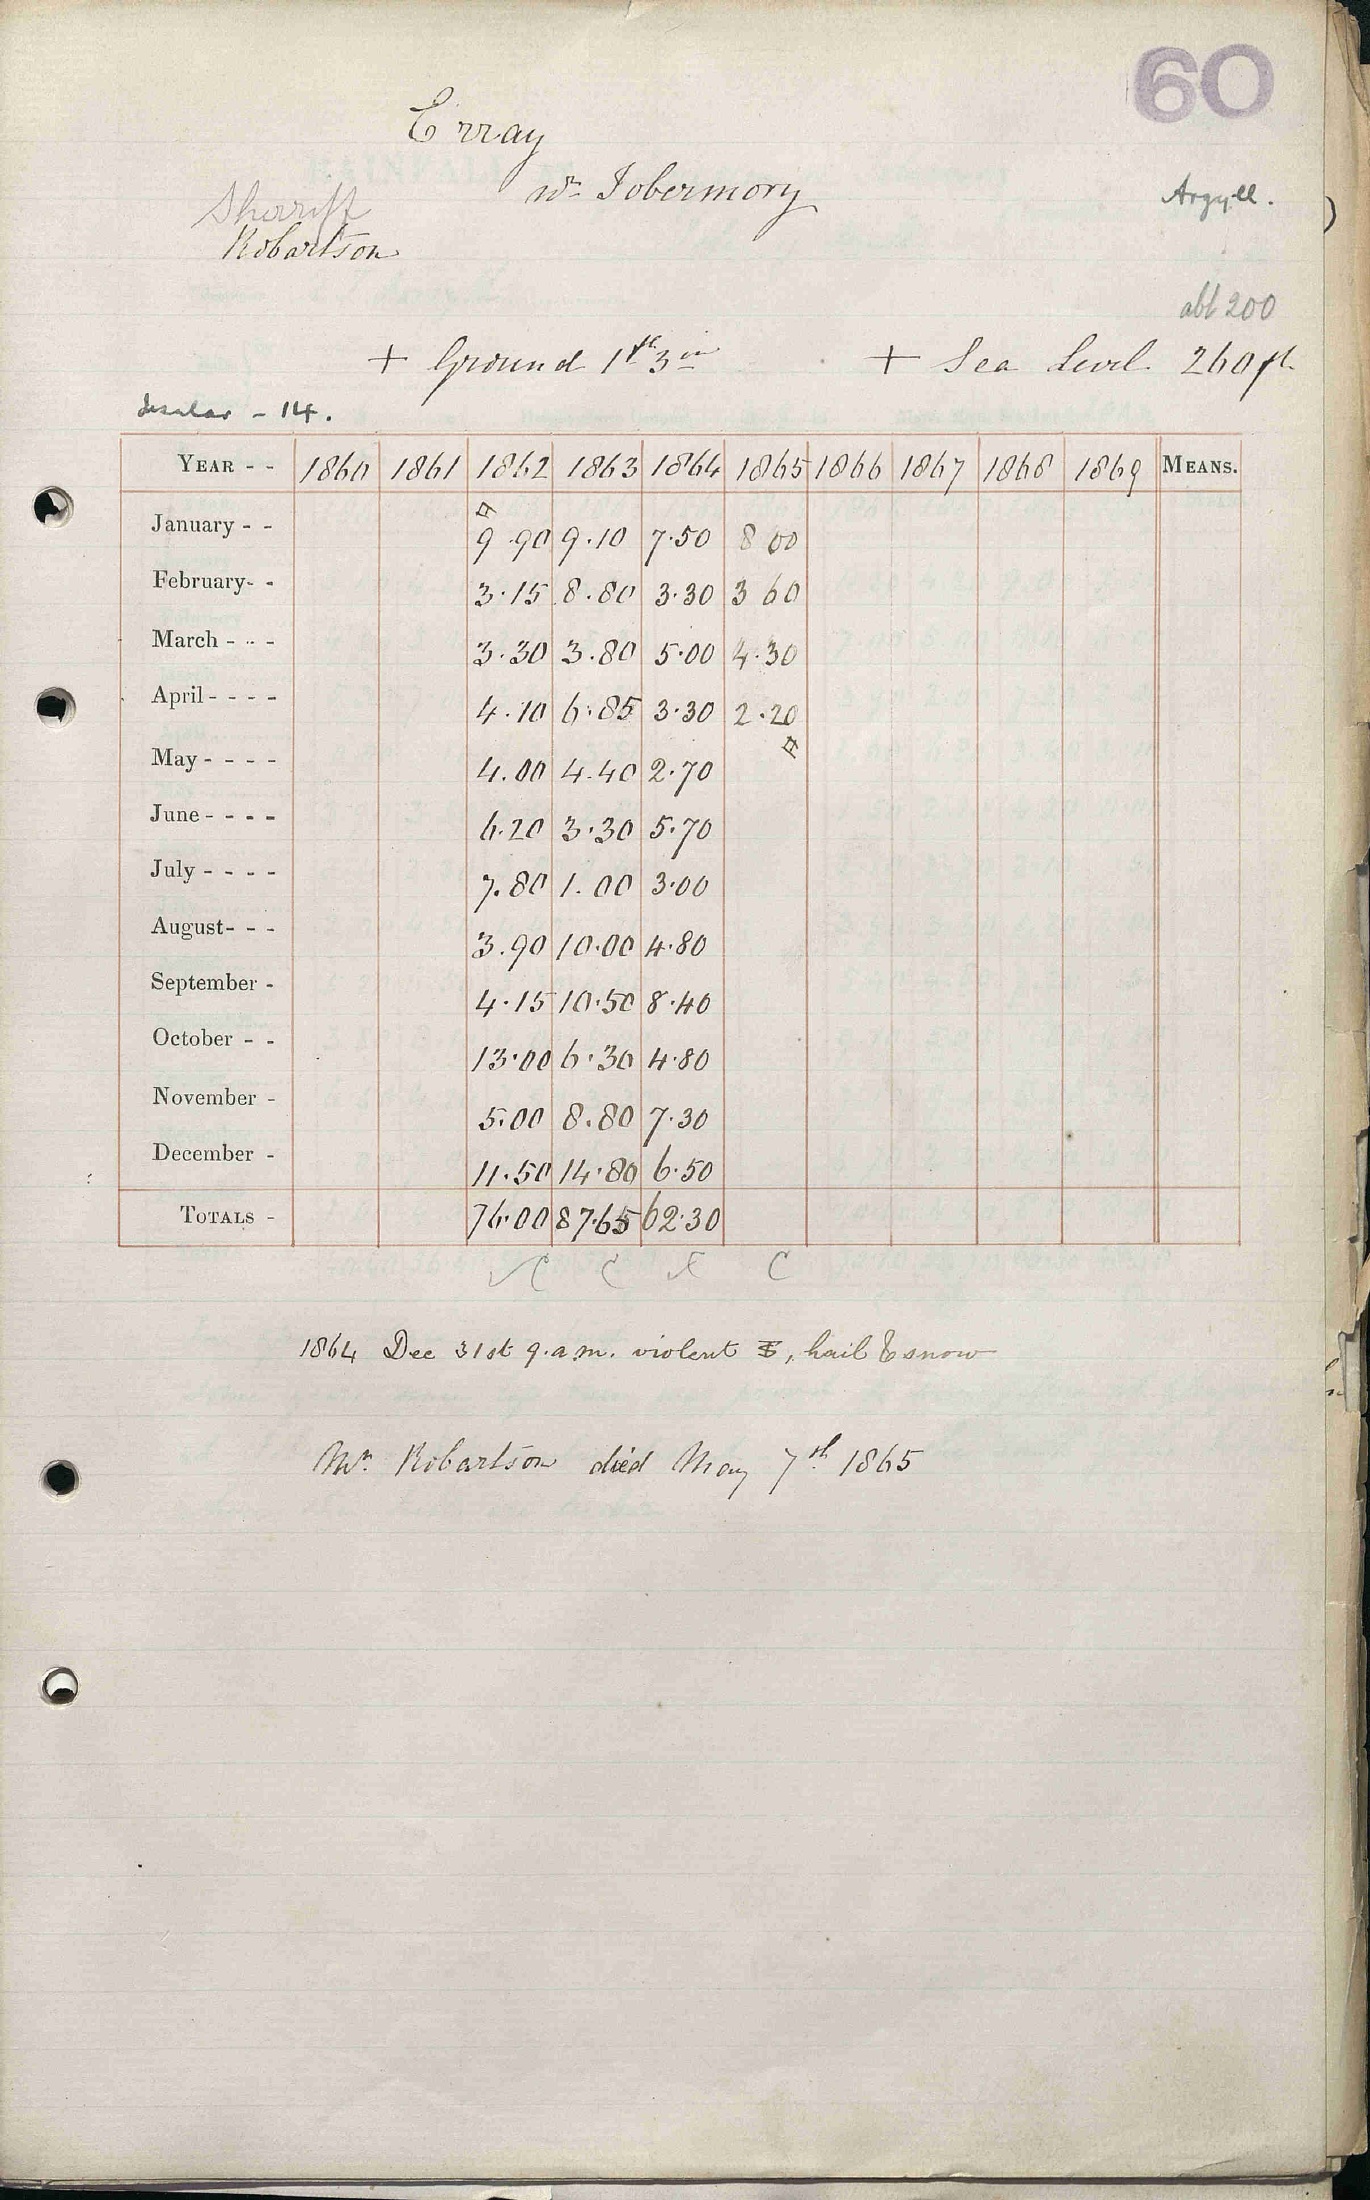 60
Erray
nr Tobermory
Argyll.
Sheriff
Robertson
abt 200
+ Ground 1 ft 3 in + Sea Level 260 ft
Insular - 14.
YEAR - - 1860 1861 1862 1863 1864 1865 1866 1867 1868 1869 MEANS.
January - - 9.90 9.10 7.50 8 00
February- - 3.15 8.80 3.30 3 60
March - - - 3.30 3.80 5.00 4.30
April - - - - 4.10 6.85 3.30 2.20
May - - - - 4.00 4.40 2.70
June - - - - 6.20 3.30 5.70
July - - - - 7.80 1.00 3.00
August- - - 3.90 10.00 4.80
September - 4.15 10.50 8.40
October - - 13.00 6.30 4.80
November - 5.00 8.80 7.30
December - 11.50 14.80 6.50
TOTALS - 76.00 87.65 62.30
C C C C
1864 Dec 31st 9.a.m. violent , hail & snow
Mr. Robartson died May 7th 1865